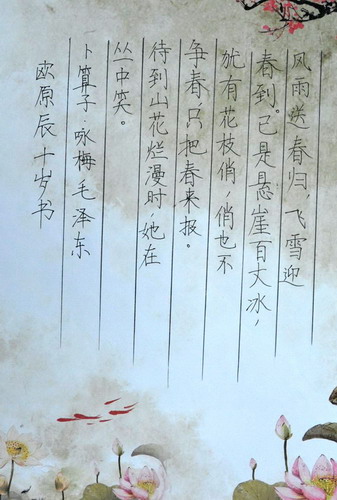 风雨送春归，飞雪迎
春到。已是悬崖百丈冰，
犹有花枝俏，俏也不
争春，只把春来报。
待到山花烂漫时，她在
丛中笑。
卜算子·咏梅毛泽东
欧原辰十岁书